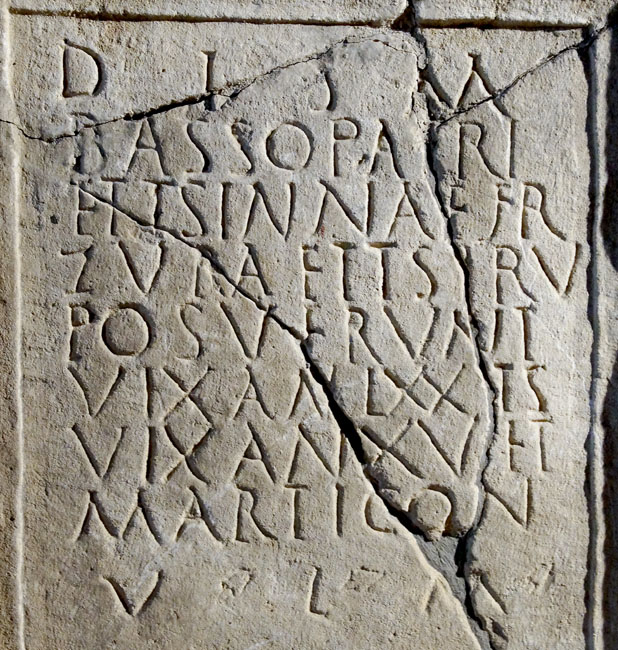 D I S M
BASSOPA RI
ETTSINNAEFR
ZVRAETTS RV
POSVERVNT
VIXANLXXTS
VIXANXVET
MARTICO N